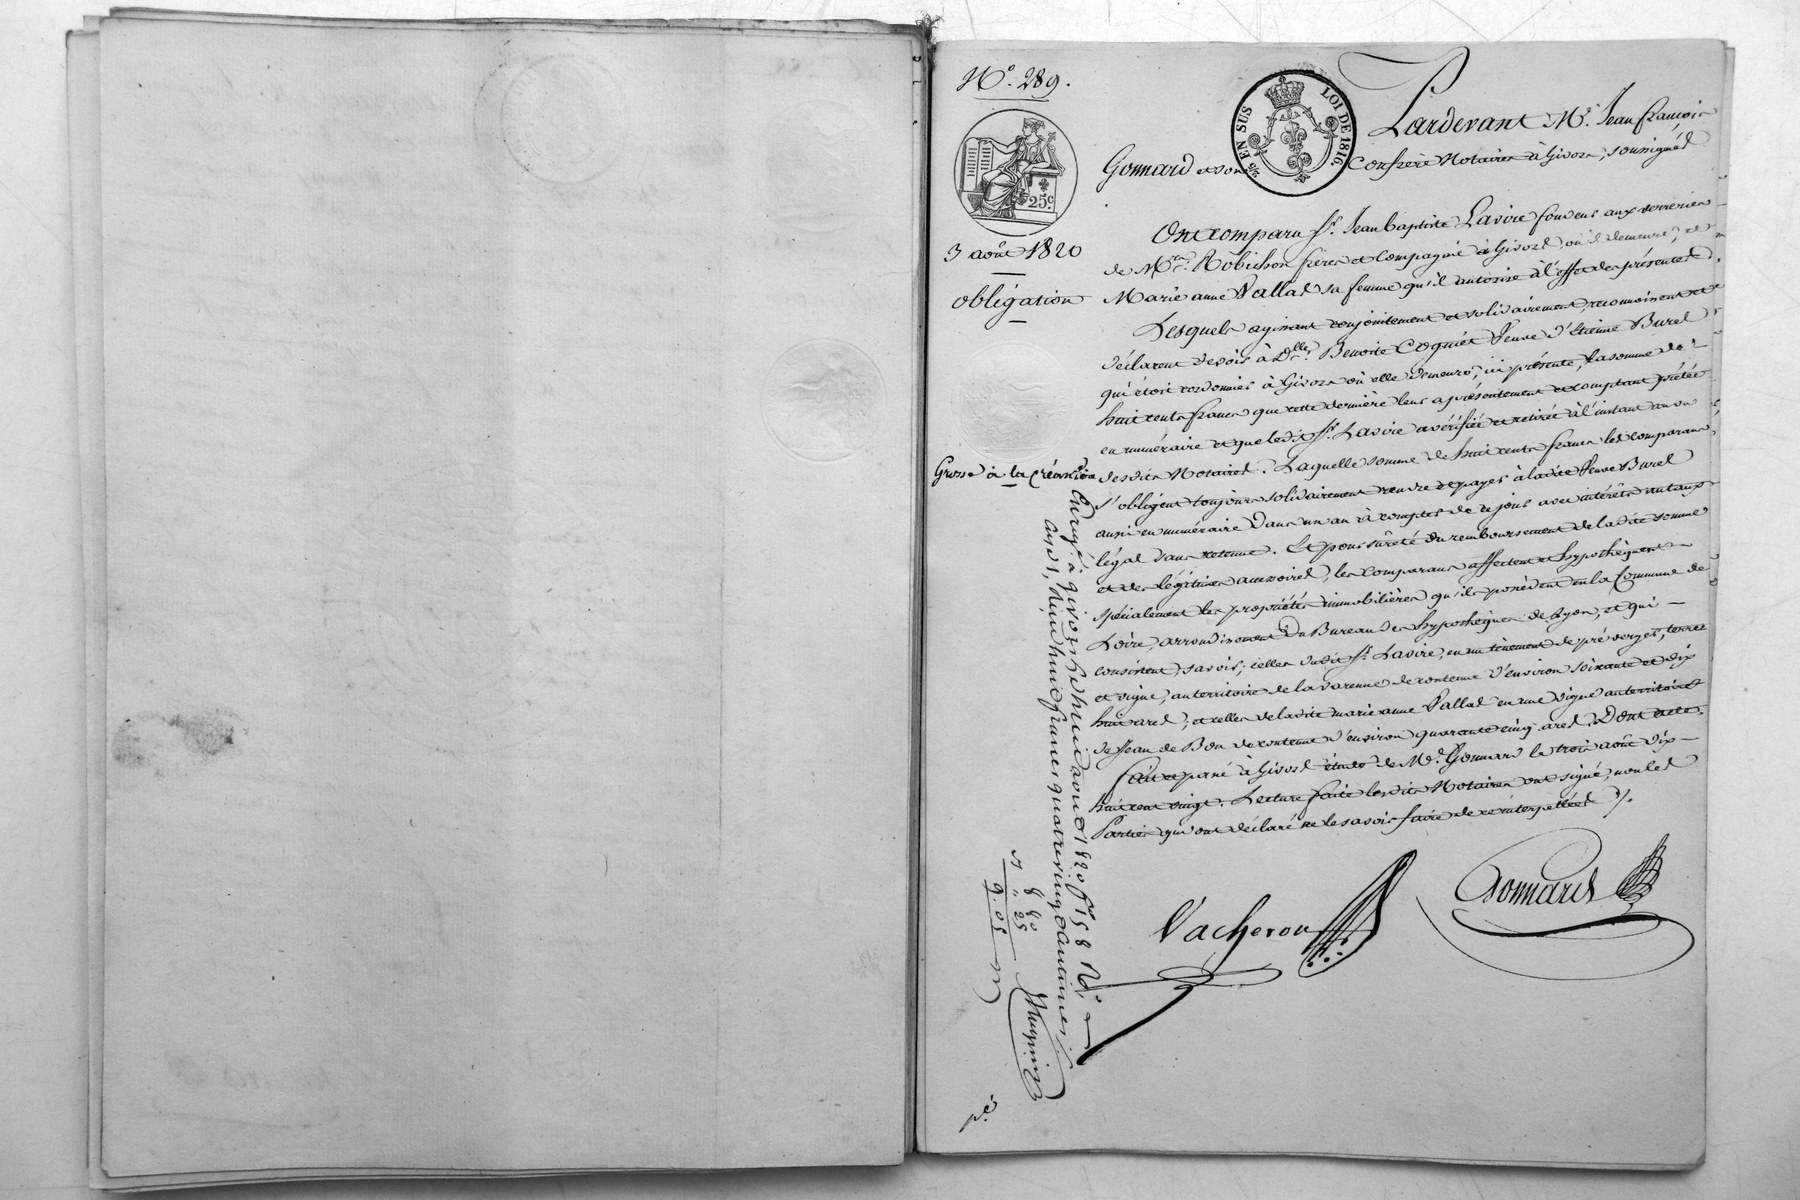 N.° 289.
25.c
3 août 1820
obligation
Grosse à la Créancière
EN SUS
LOI DE 1816.
Pardevant M.e Jean François
Gonnard et son Confrère Notaires à Givors, soussignés
Ont comparu S.r Jean Baptiste Lavire fondeur aux verreries
de M.rs Robichon frères et Compagnie à Givors où il demeure, et
Marie anne Vallas sa femme qu'il autorise à l'effet des présentes.
Lesquels agissant conjointement et solidairement, reconnoissent et
déclarent devoir à D.lle Benoite Coquiet Veuve d'Etienne Burel
qui étoit cordonnier à Givors où elle demeure, ici présente, la somme de
huit cents francs que cette dernière leur a présentement et comptant prêtée
en numéraire et que ledit S.r Lavire a vérifiée et retirée à l'instant au vu
desdits Notaires. Laquelle somme de huit cents francs les comparans
s'obligent toujours solidairement rendre et payer à ladite Veuve Burel
aussi en numéraire dans un an à compter de ce jour avec intérêts au taux
légal sans retenue. Et pour sûreté du remboursement de ladite somme
et des légitimes accessoires, les comparans affectent et hypothèquent
spécialement les propriétés immobilières qu'ils possèdent en la Commune de
Loire, arrondissement du Bureau des hypothèques de Lyon, et qui
consistent, savoir; celles dudit S.r Lavire, en un tènement de pré verger, terre
et vigne, au territoire de la varenne de contenue d'environ soixante et dix
huit ares; et celles de ladite marie anne Vallas en une vigne au territoire
de Jean de Bon de contenue d'environ quarante cinq ares. Dont acte.
fait et passé à Givors étude de M.e Gonnard le trois août dix
huit cent vingt. Lecture faite lesdits Notaires ont signé, non les
Parties qui ont déclaré ne le savoir faire de ce interpellées ./.
Vacheron
Gonnard
Enreg.é à givors le huit aout 1820 f.o 158
reçu huit francs quatre vingt centimes
8 80
.. 25
9.05